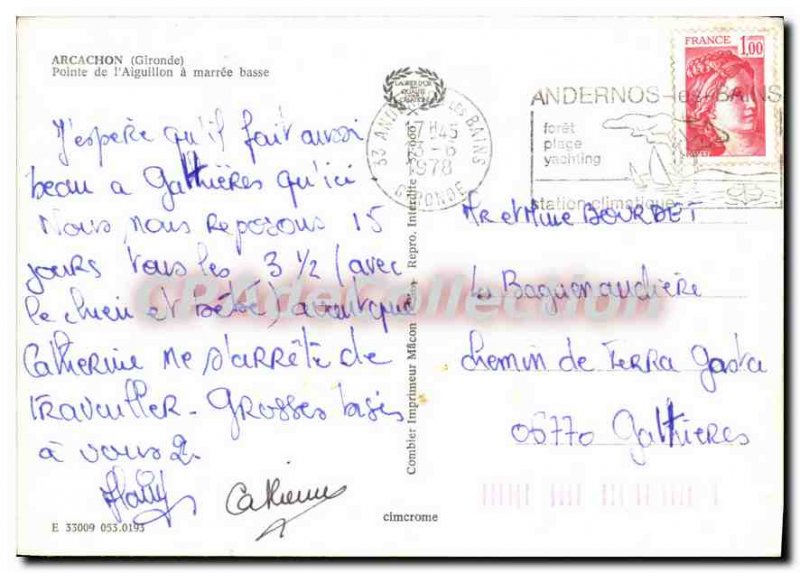 ARCACHON (Gironde)
Pointe de l'Aiguillon à marrée basse
J'espère qu'il fait aussi
beau a Gattières qu'ici
Nous nous reposons 15
jours tous les 3 1/2 (avec
le chien et Bébé) avant que
Catherine ne s'arrête de
travailler - Grosses bises
à vous 2.
Catherine
E 33009 053.0193
Combier Imprimeur Mâcon
Repro. Interdite
cimcrome
33 ANDERNOS LES BAINS
17H45
13-6
1978
GIRONDE
ANDERNOS-les-BAINS
forêt
plage
yachting
station climatique
FRANCE 1,00
Mr et Mme BOURDET
La Baguenaudière
chemin de Terra Gasta
06770 Gattières
CPADeCollection